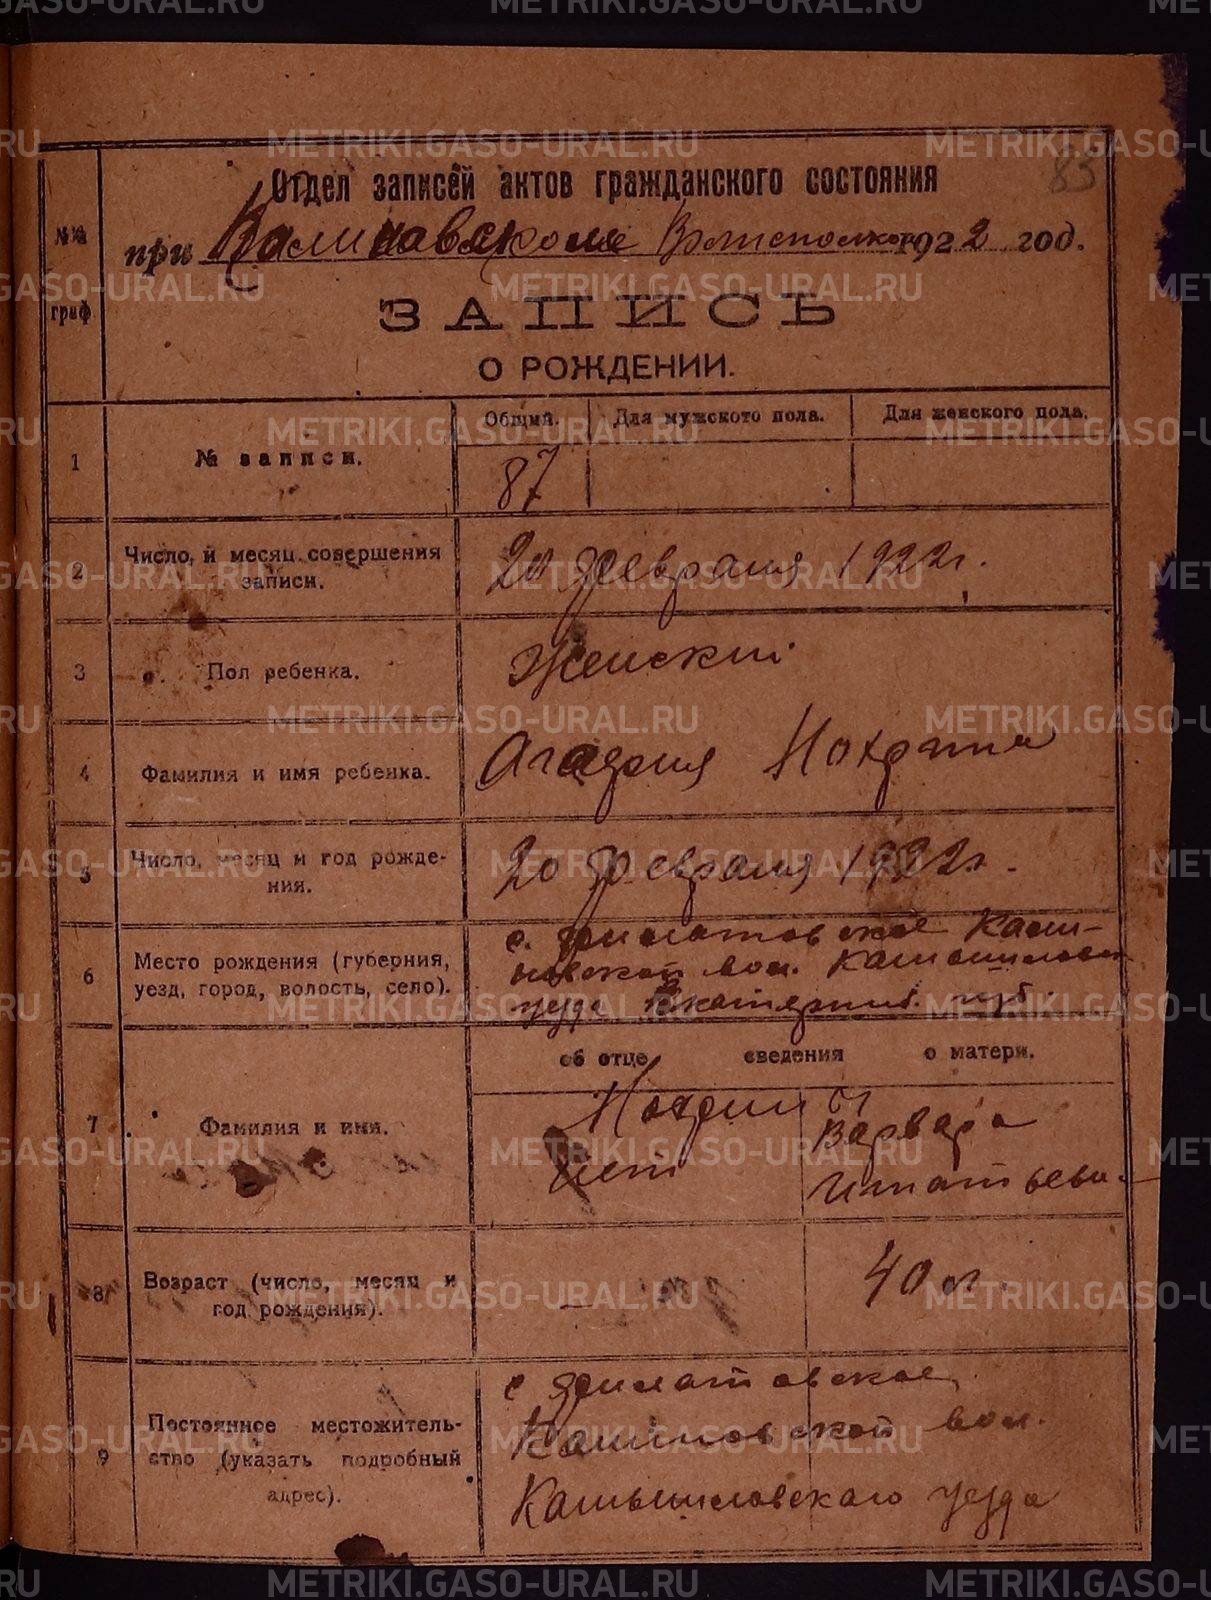 83
Отдел записей актов гражданского состояния
при Калиновском Волисполкоме 1922 год.
№№ граф.
ЗАПИСЬ
О РОЖДЕНИИ.
Общий. Для мужского пола. Для женского пола.
1 № записи. 87
2 Число, и месяц совершения записи. 21 февраля 1922 г.
3 Пол ребенка. Женский
4 Фамилия и имя ребенка. Агафия Нохрина
5 Число, месяц и год рождения. 20 февраля 1922 г.
6 Место рождения (губерния, уезд, город, волость, село).
с. Филатовское Кали-
новской вол. Камышловск.
уезда Екатеринб. губ.
об отце сведения о матери.
7 Фамилия и имя.
Нохрины
Нет Варвара
Игнатьевн.
8 Возраст (число, месяц и год рождения). — 40 л.
9 Постоянное местожитель-
ство (указать подробный
адрес).
с Филатовское
Калиновской вол.
Камышловскаго уезда
METRIKI.GASO-URAL.RU